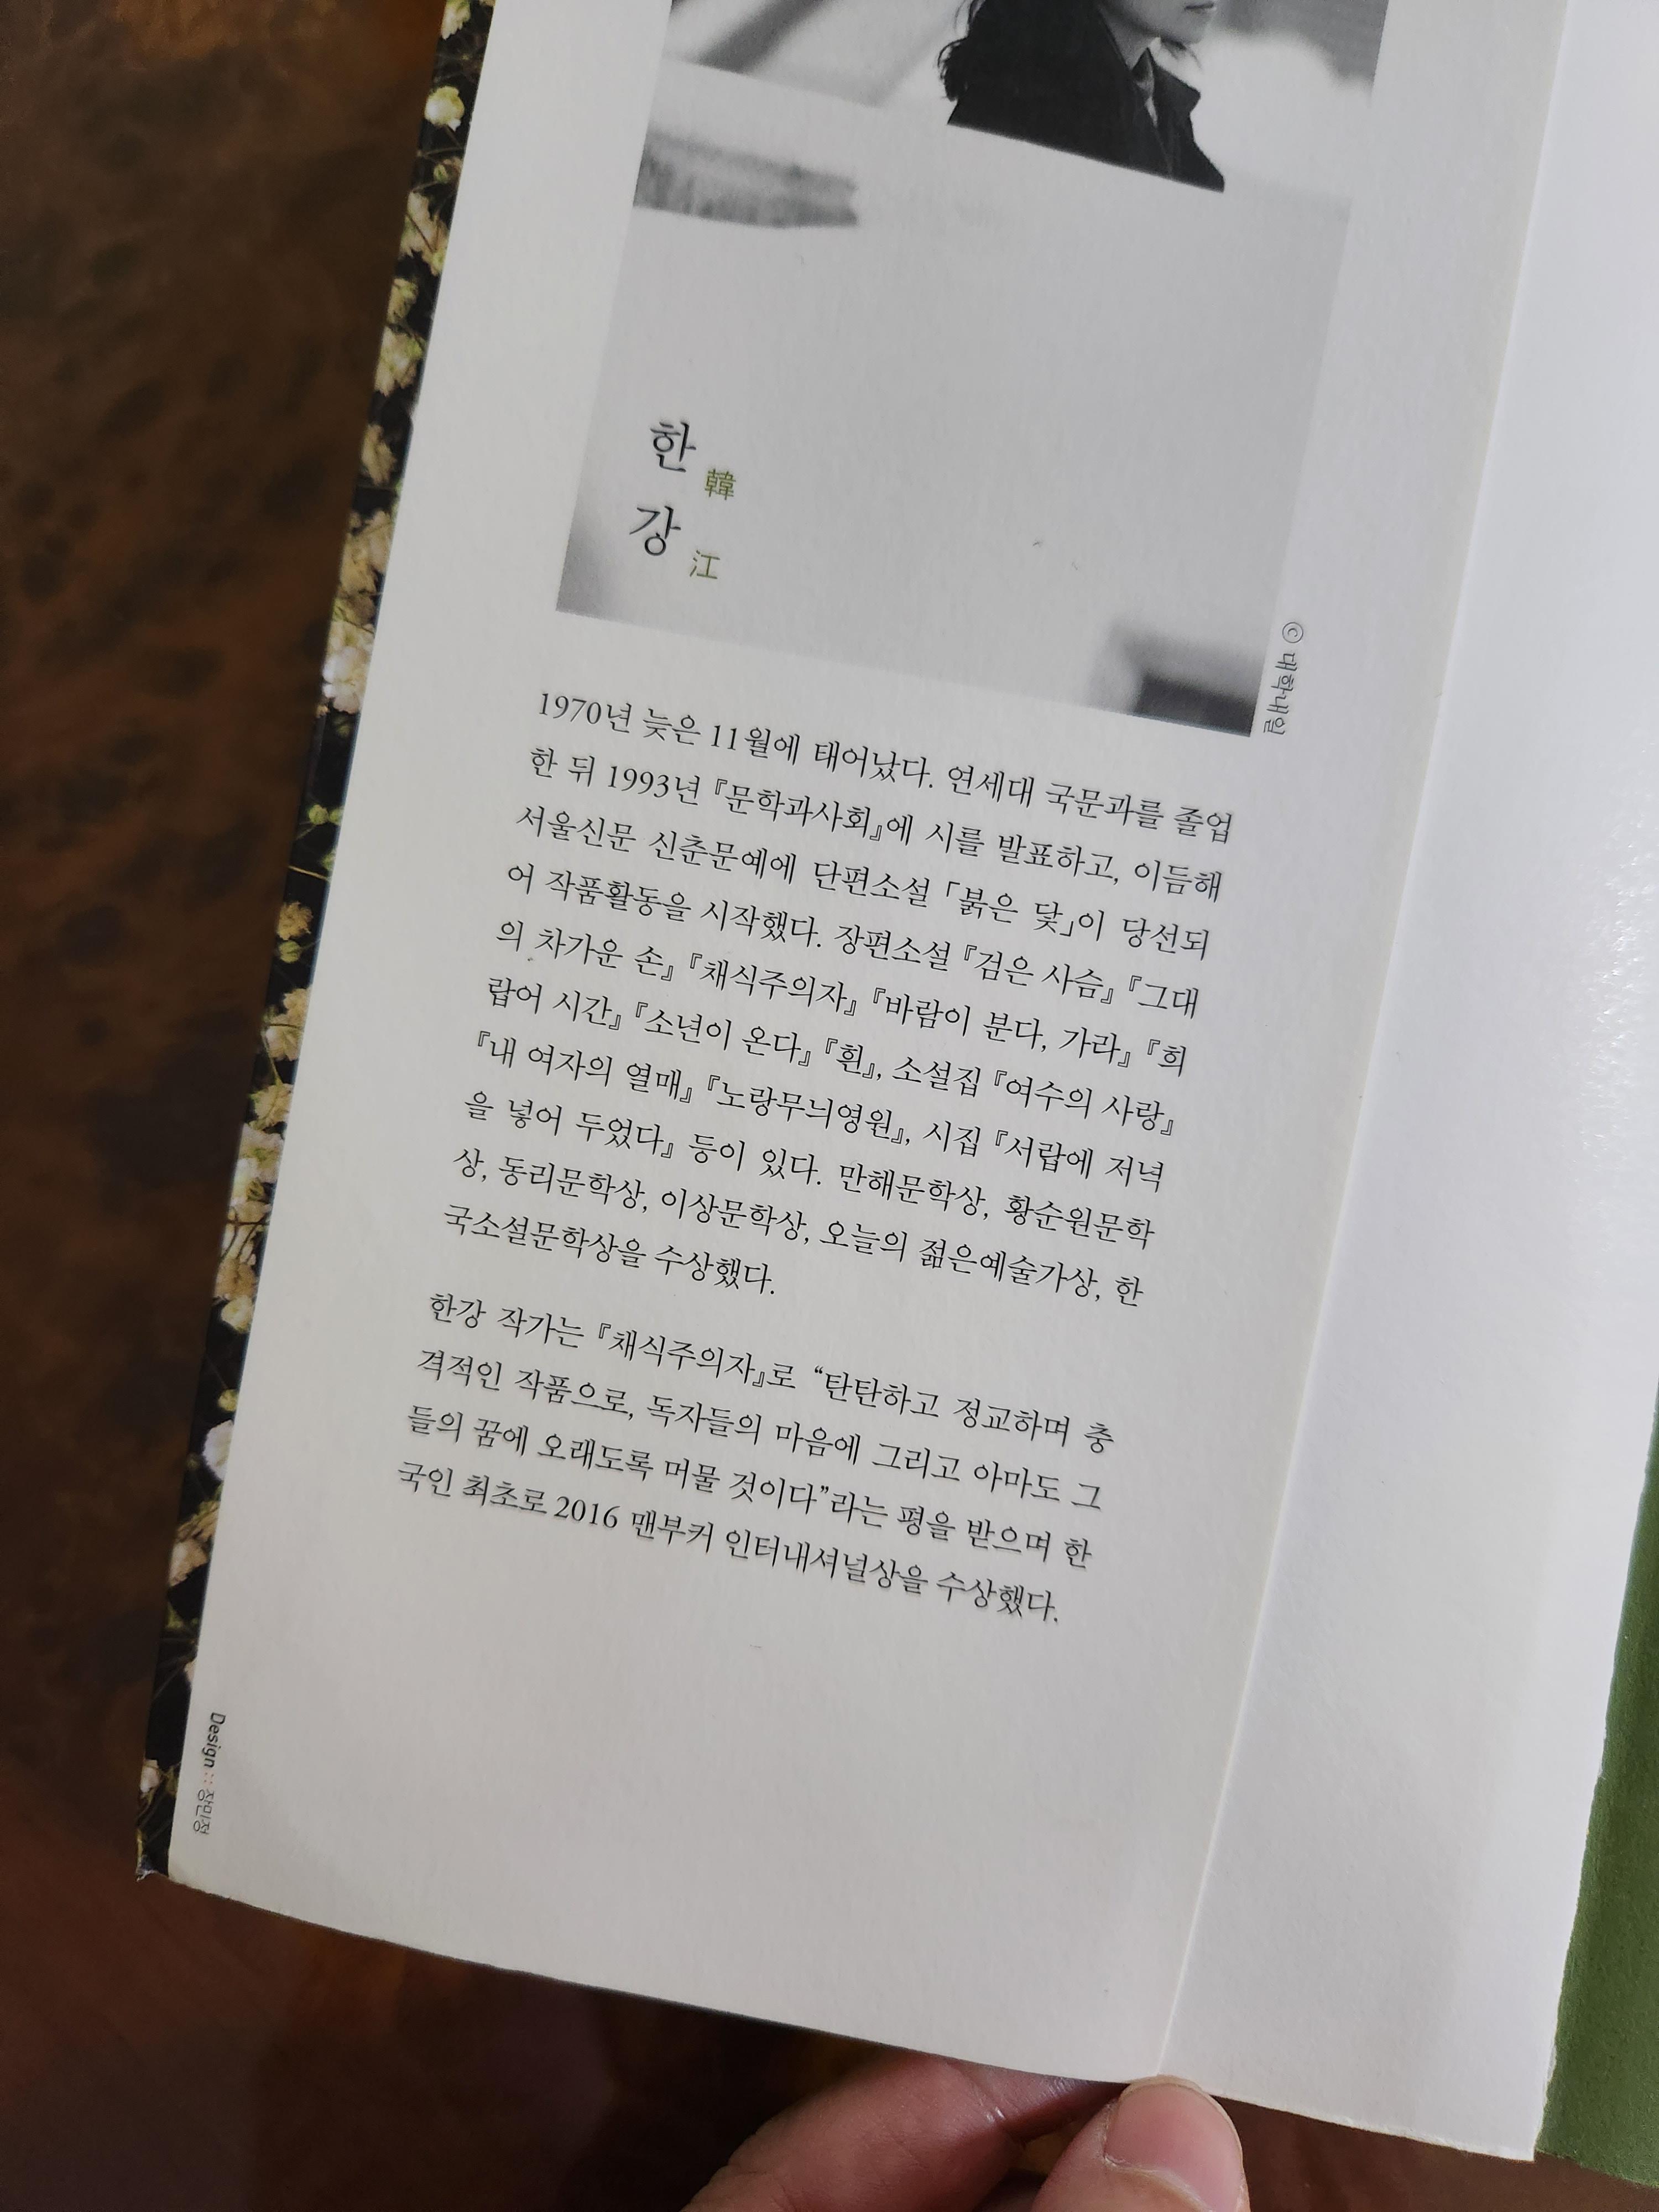 한 韓
강 江
© 대학내일
1970년 늦은 11월에 태어났다. 연세대 국문과를 졸업
한 뒤 1993년 『문학과사회』에 시를 발표하고, 이듬해
서울신문 신춘문예에 단편소설 「붉은 닻」이 당선되
어 작품활동을 시작했다. 장편소설 『검은 사슴』 『그대
의 차가운 손』 『채식주의자』 『바람이 분다, 가라』 『희
랍어 시간』 『소년이 온다』 『흰』, 소설집 『여수의 사랑』
『내 여자의 열매』 『노랑무늬영원』, 시집 『서랍에 저녁
을 넣어 두었다』 등이 있다. 만해문학상, 황순원문학
상, 동리문학상, 이상문학상, 오늘의 젊은예술가상, 한
국소설문학상을 수상했다.
한강 작가는 『채식주의자』로 “탄탄하고 정교하며 충
격적인 작품으로, 독자들의 마음에 그리고 아마도 그
들의 꿈에 오래도록 머물 것이다”라는 평을 받으며 한
국인 최초로 2016 맨부커 인터내셔널상을 수상했다.
Design :: 장민정